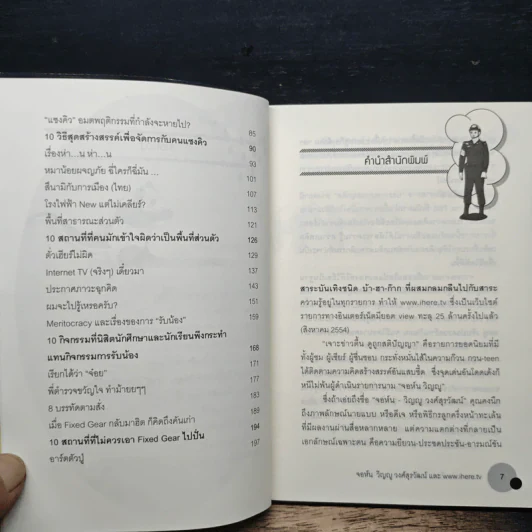 "แซงคิว" อมตพฤติกรรมที่กำลังจะหายไป? 85
10 วิธีสุดสร้างสรรค์เพื่อจัดการกับคนแซงคิว 90
เรื่องห่า...น ห่า...น 93
หมาน้อยผจญภัย ขี้ใครก็ขี้มัน ... 101
สึนามิกับการเมือง (ไทย) 107
โรงไฟฟ้า New แต่ไม่เคลียร์? 113
พื้นที่สาธารณะส่วนตัว 121
10 สถานที่ที่คนมักเข้าใจผิดว่าเป็นพื้นที่ส่วนตัว 126
ตั๋วเฮียร์ไม่ผิด 129
Internet TV (จริงๆ) เดี๋ยวมา 137
ประกาศภาวะฉุกคิด 143
ผมจะไปรู้เหรอครับ? 151
Meritocracy และเรื่องของการ "รับน้อง" 159
10 กิจกรรมที่นิสิตนักศึกษาและนักเรียนพึงกระทำ
แทนกิจกรรมการรับน้อง 168
เรียกได้ว่า "จ๋อย" 171
พี่ตำรวจขวัญใจ ทำม้ายยๆๆ 177
8 บรรทัดตามสั่ง 184
เมื่อ Fixed Gear กลับมาฮิต ก็คิดถึงต้นเก่า 187
10 สถานที่ที่ไม่ควรเอา Fixed Gear ไปปั่น 194
อาร์ตตัวปู่ 197
คำนำสำนักพิมพ์
สาระบันเทิงชนิด บ้า-ฮา-ก๊าก ที่ผสมกลมกลืนไปกับสาระ
ความรู้อยู่ในทุกรายการ ทำให้ www.ihere.tv ซึ่งเป็นเว็บไซต์
รายการทางอินเตอร์เน็ตมียอด view ทะลุ 25 ล้านครั้งไปแล้ว
(สิงหาคม 2554)
"เจาะข่าวตื้น ดูถูกสติปัญญา" คือรายการยอดนิยมที่มี
ทั้งผู้ชม ผู้เชียร์ ผู้ชื่นชอบ กระทั่งหมั่นไส้ในความกวน กวน-teen
ได้ติดตามความคิดสร้างสรรค์อันแสบซึ้ง ซึ่งจุดเด่นอันโดดเด้งก็
หนีไม่พ้นผู้ดำเนินรายการนาม "จอห์น วิญญู"
ซึ่งถ้าเอ่ยถึงชื่อ "จอห์น - วิญญู วงศ์สุรวัฒน์" คุณคงนึก
ถึงภาพลักษณ์นายแบบ หรือดีเจ หรือพิธีกรลูกครึ่งหน้าทะเล้น
ที่มีผลงานผ่านสื่อหลากหลาย แต่ความแตกต่างที่กลายเป็น
เอกลักษณ์เฉพาะตน คือความยียวน-ประชดประชัน-อารมณ์ขัน
จอห์น วิญญู วงศ์สุรวัฒน์ และ www.ihere.tv 7